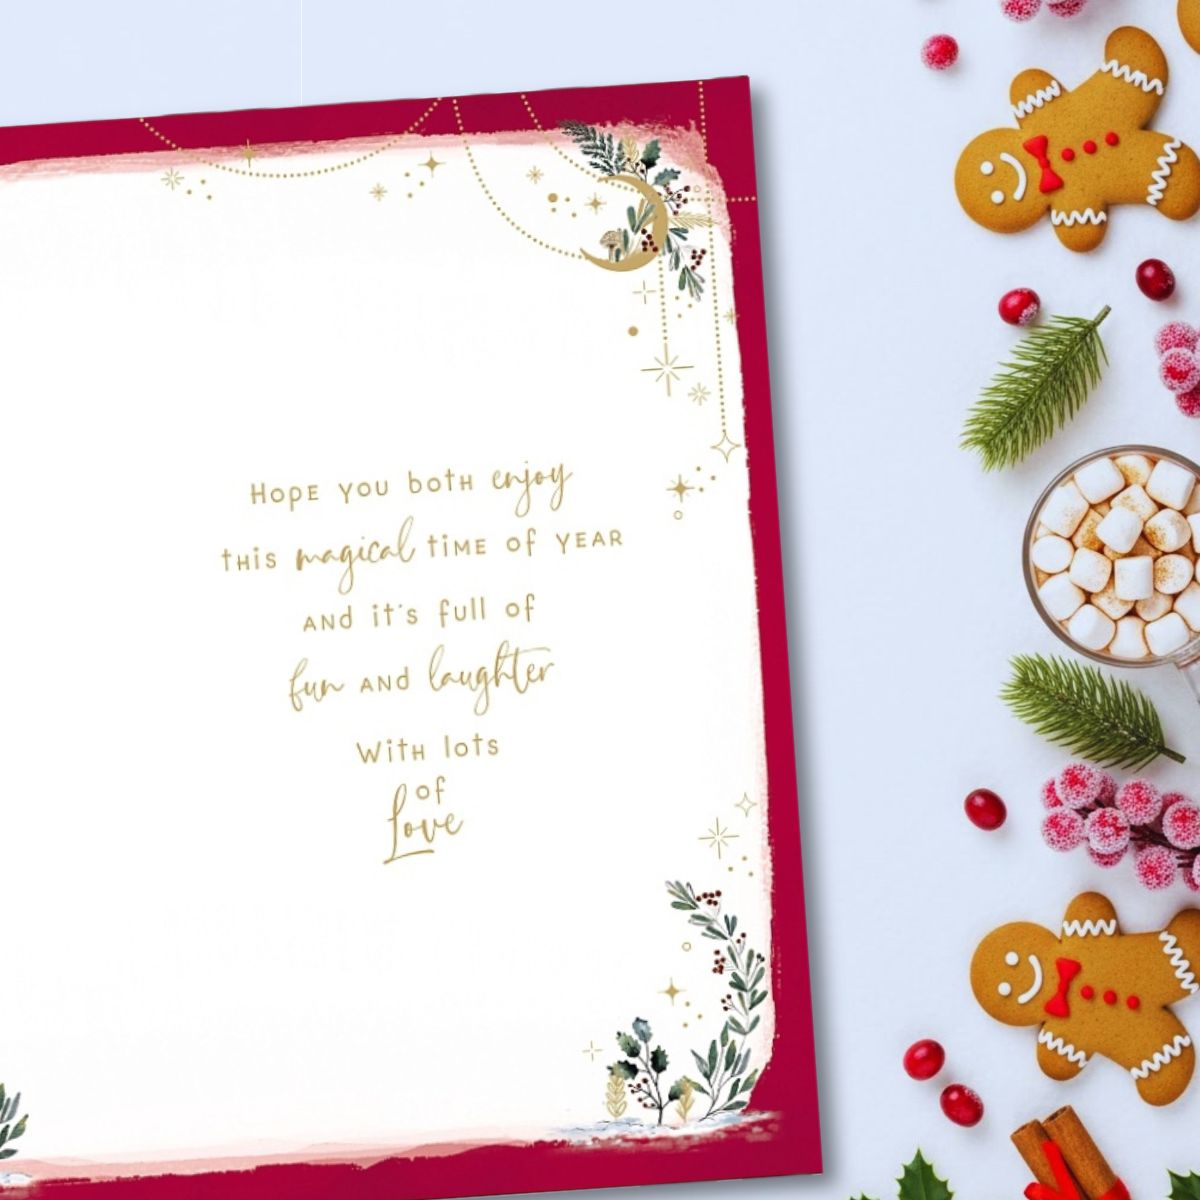 Hope you both enjoy
this magical time of year
and it's full of
fun and laughter
With lots
of
Love